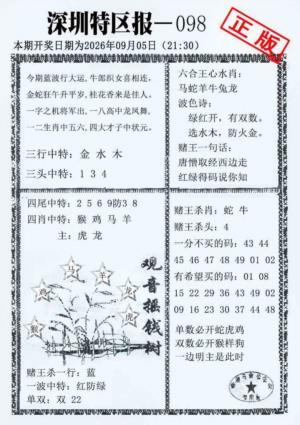 深圳特区报—098
正版
本期开奖日期为2026年09月05日（21:30）
今期蓝波行大运，牛郎织女喜相连。
金蛇狂牛升平岁，桂花香来是佳人。
一字之机将军出，一八高中龙凤舞。
一二生肖中五六，四大才子中状元。
三行中特：金 水 木
三头中特：1 3 4
六合王心水肖：
马蛇羊牛兔龙
波色诗：
绿红开，有双数。
选水木，防火金。
赌王一句话：
唐憎取经西边走
红绿得码说你知
四尾中特：2 5 6 9防3 8
四肖中特：猴 鸡 马 羊
主：虎 龙
观音摇钱树
马
羊
鸡
龙
猴
虎
赌王杀一行：蓝
一波中特：红防绿
单双：双 22
赌王杀肖：蛇 牛
赌王杀头：4
一分不买的码：43 44
45 46 47 48 49 01 02
有希望买的码：01 08
15 22 29 36 43 49 02
09 16 23 30 37 44 48
单数必开蛇虎鸡
双数必开猴样狗
一边明主是此时